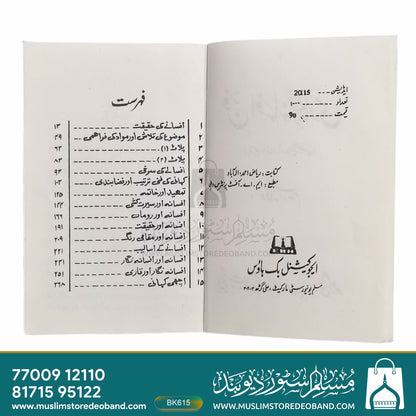 ایڈیشن --- 2015
تعداد --- ۱۰۰۰
قیمت --- 90
کتابت: ریاض احمد، الہ آباد
مطبع: ایم۔ اے۔ آفسٹ پرنٹرس دہلی
ایجوکیشنل بک ہاؤس
مسلم یونیورسٹی مارکیٹ، علی گڑھ ۲۰۲۰۰۲
فہرست
۱ افسانے کی حقیقت ۱۳
۲ موضوع کی تلاش اور مواد کی فراہمی ۴۹
۳ پلاٹ (۱) ۶۳
۴ پلاٹ (۲) ۸۳
۵ افسانے کی سرخی ۹۳
۶ کہانی کی فنی ترتیب اور فضا بندی ۱۰۳
۷ تمہید اور خاتمہ
۸ افسانہ اور سیرت کشی ۱۴۴
۹ افسانہ اور رومان ۱۶۶
۱۰ افسانہ اور حقیقت ۱۹۱
۱۱ افسانہ اور مقامی رنگ ۲۰۹
۱۲ افسانے کے اسالیب ۲۲۱
۱۳ افسانہ اور افسانہ نگار ۲۳۱
۱۴ افسانہ نگار اور قاری ۲۵۱
۱۵ اچھی کہانی ۲۶۸
مسلم سٹور دیوبند
WWW.MUSLIMSTOREDEOBAND.COM
77009 12110
81715 95122
BK615
www.muslimstoredeoband.com
مسلم سٹور دیوبند